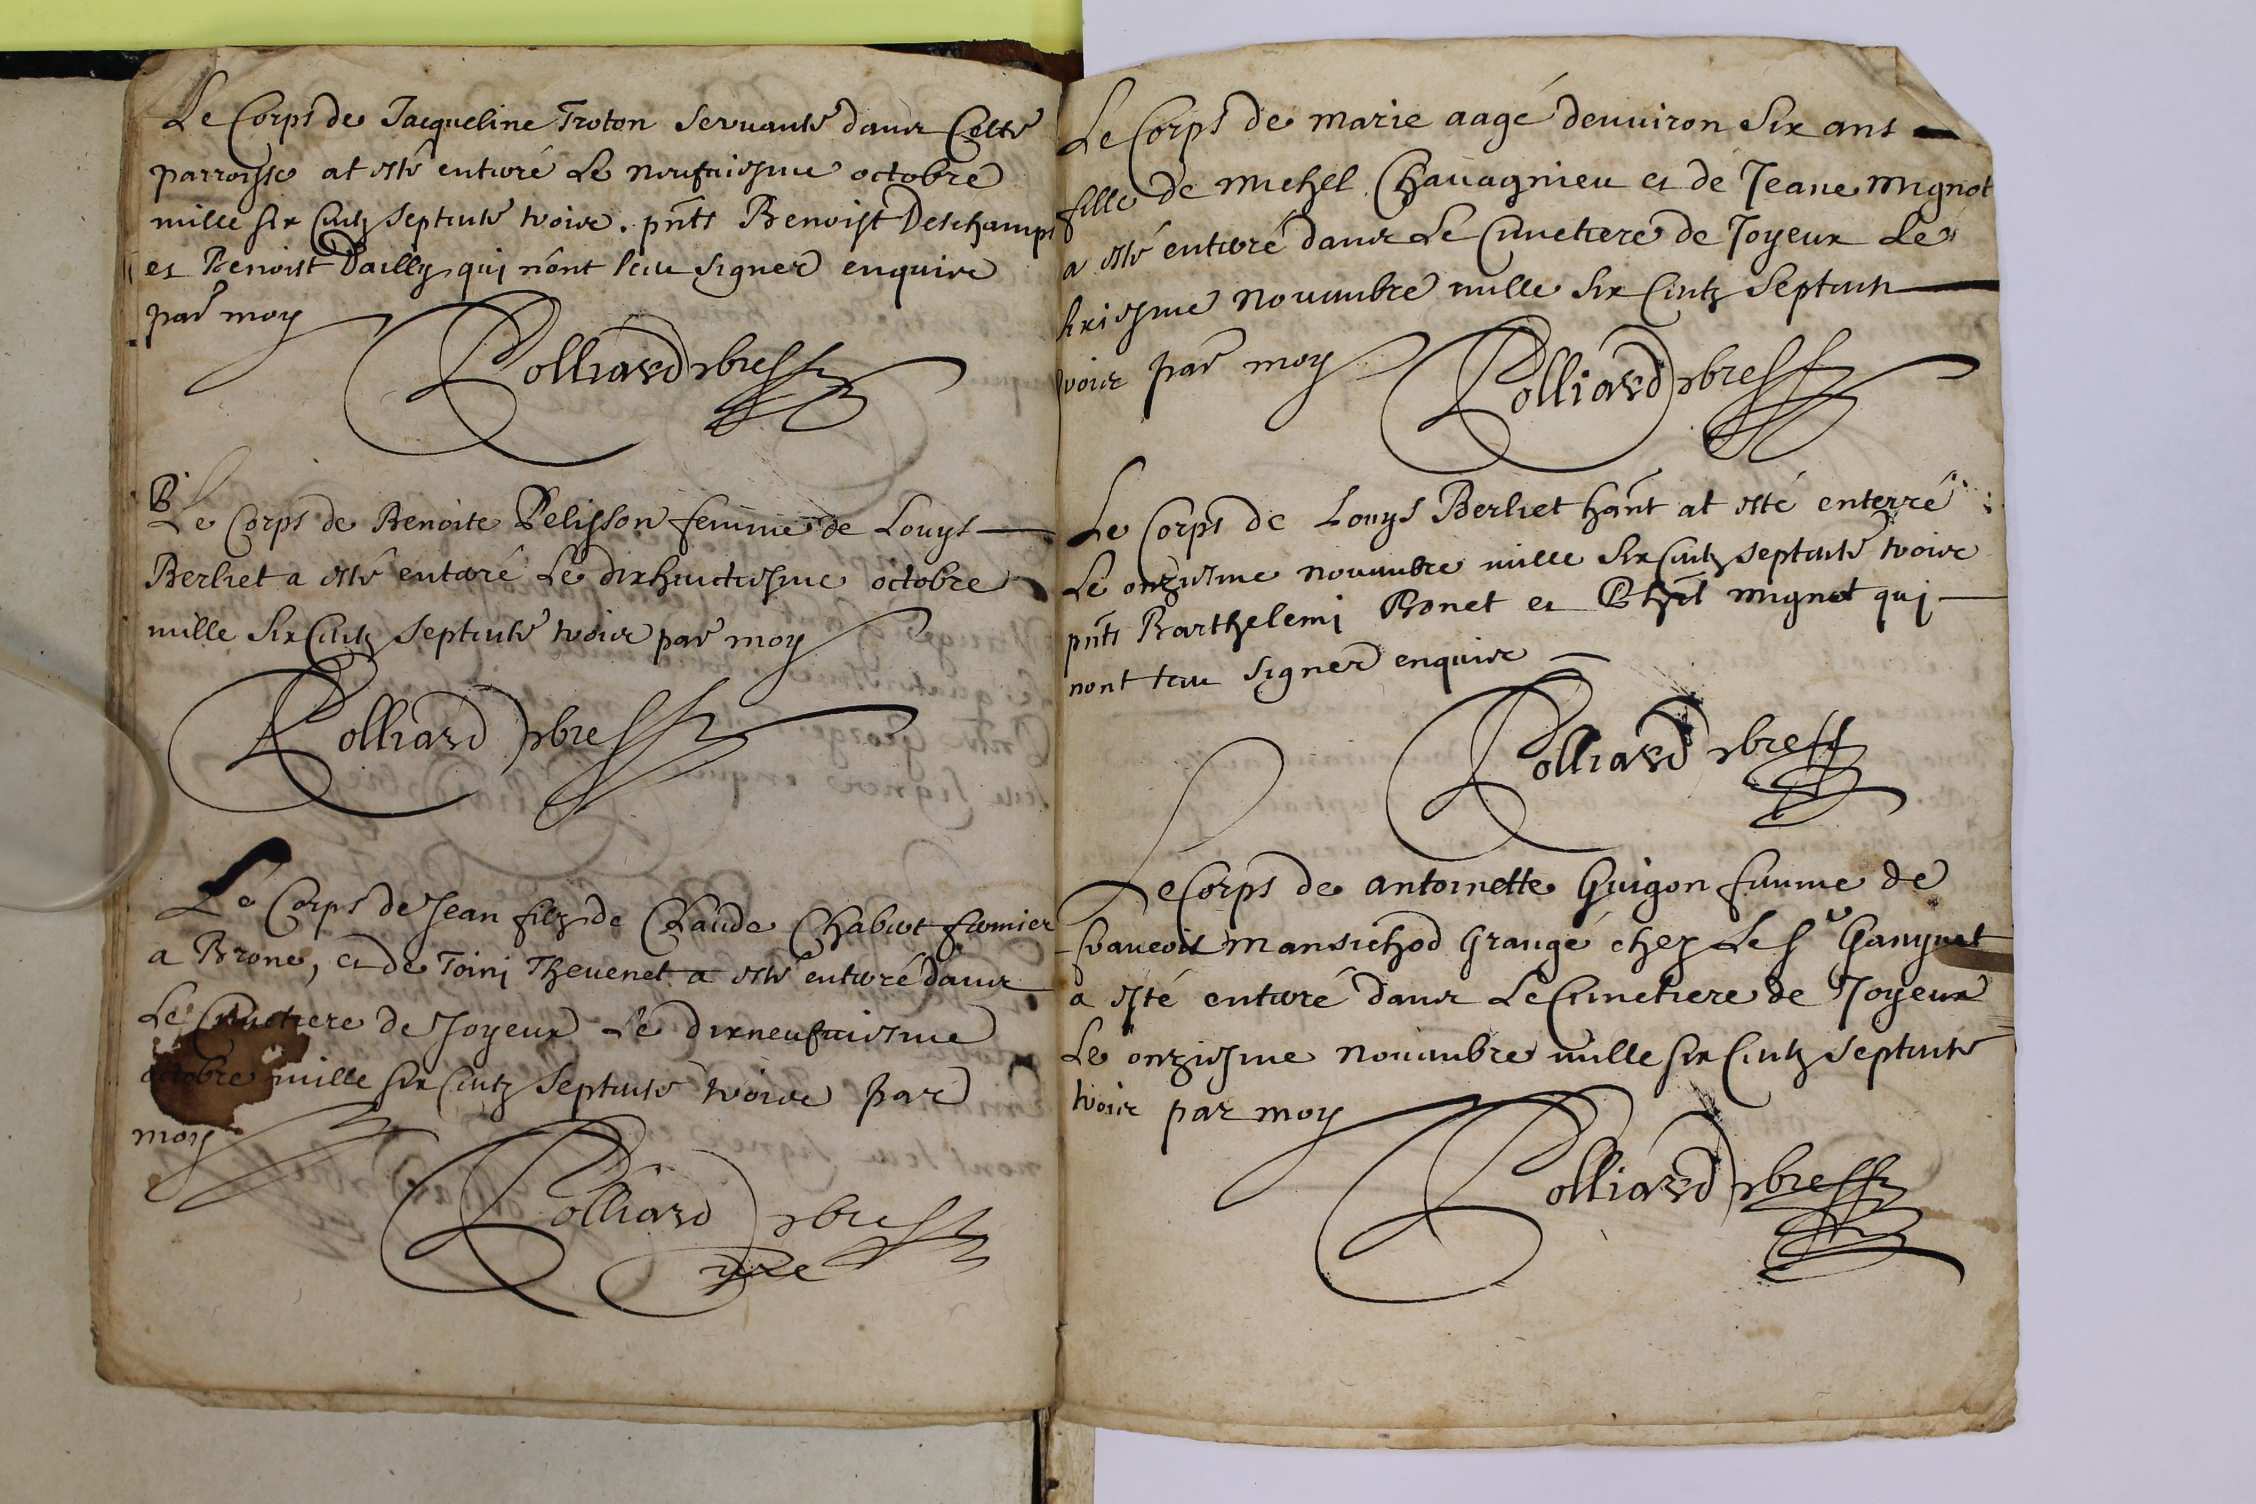 Le Corps de Jacqueline Troton servante dans Cette
parroisse at esté enterré Le neufviesme octobre
mille six Centz septante trois. pñts Benoist Deschamps
et Benoist Dailly qui nont sceu signer enquis
par moy
Rolliard
B
Le Corps de Benoite Pelisson femme de Louys
Berliet a esté enterré Le dixhuictiesme octobre
mille Six Centz septante trois par moy
Rolliard
Le Corps de Jean filz de Claude Chabert fermier
a Brone, et de Toini Thevenet a esté enterré dans
Le Cimetiere de Joyeux Le dixneufviesme
octobre mille six Centz septante trois par
moy
Rolliard
Le Corps de marie aagé denviron Six ans
fille de michel Chavagnieu et de Jeane mignot
a esté enterré dans Le Cimetiere de Joyeux Le
sixiesme novembre mille six Centz septante
trois par moy
Rolliard
Le Corps de Louys Berliet at esté enterré
Le onziesme novembre mille six Centz septante trois
pñts Barthelemi Bonet et mignot qui
nont sceu signer enquis
Rolliard
Le Corps de antoinette Guigon femme de
francois Mansichod Grangé chez Le Sr
a esté enterré dans Le Cimetiere de Joyeux
Le onziesme novembre mille six Centz septante
trois par moy
Rolliard